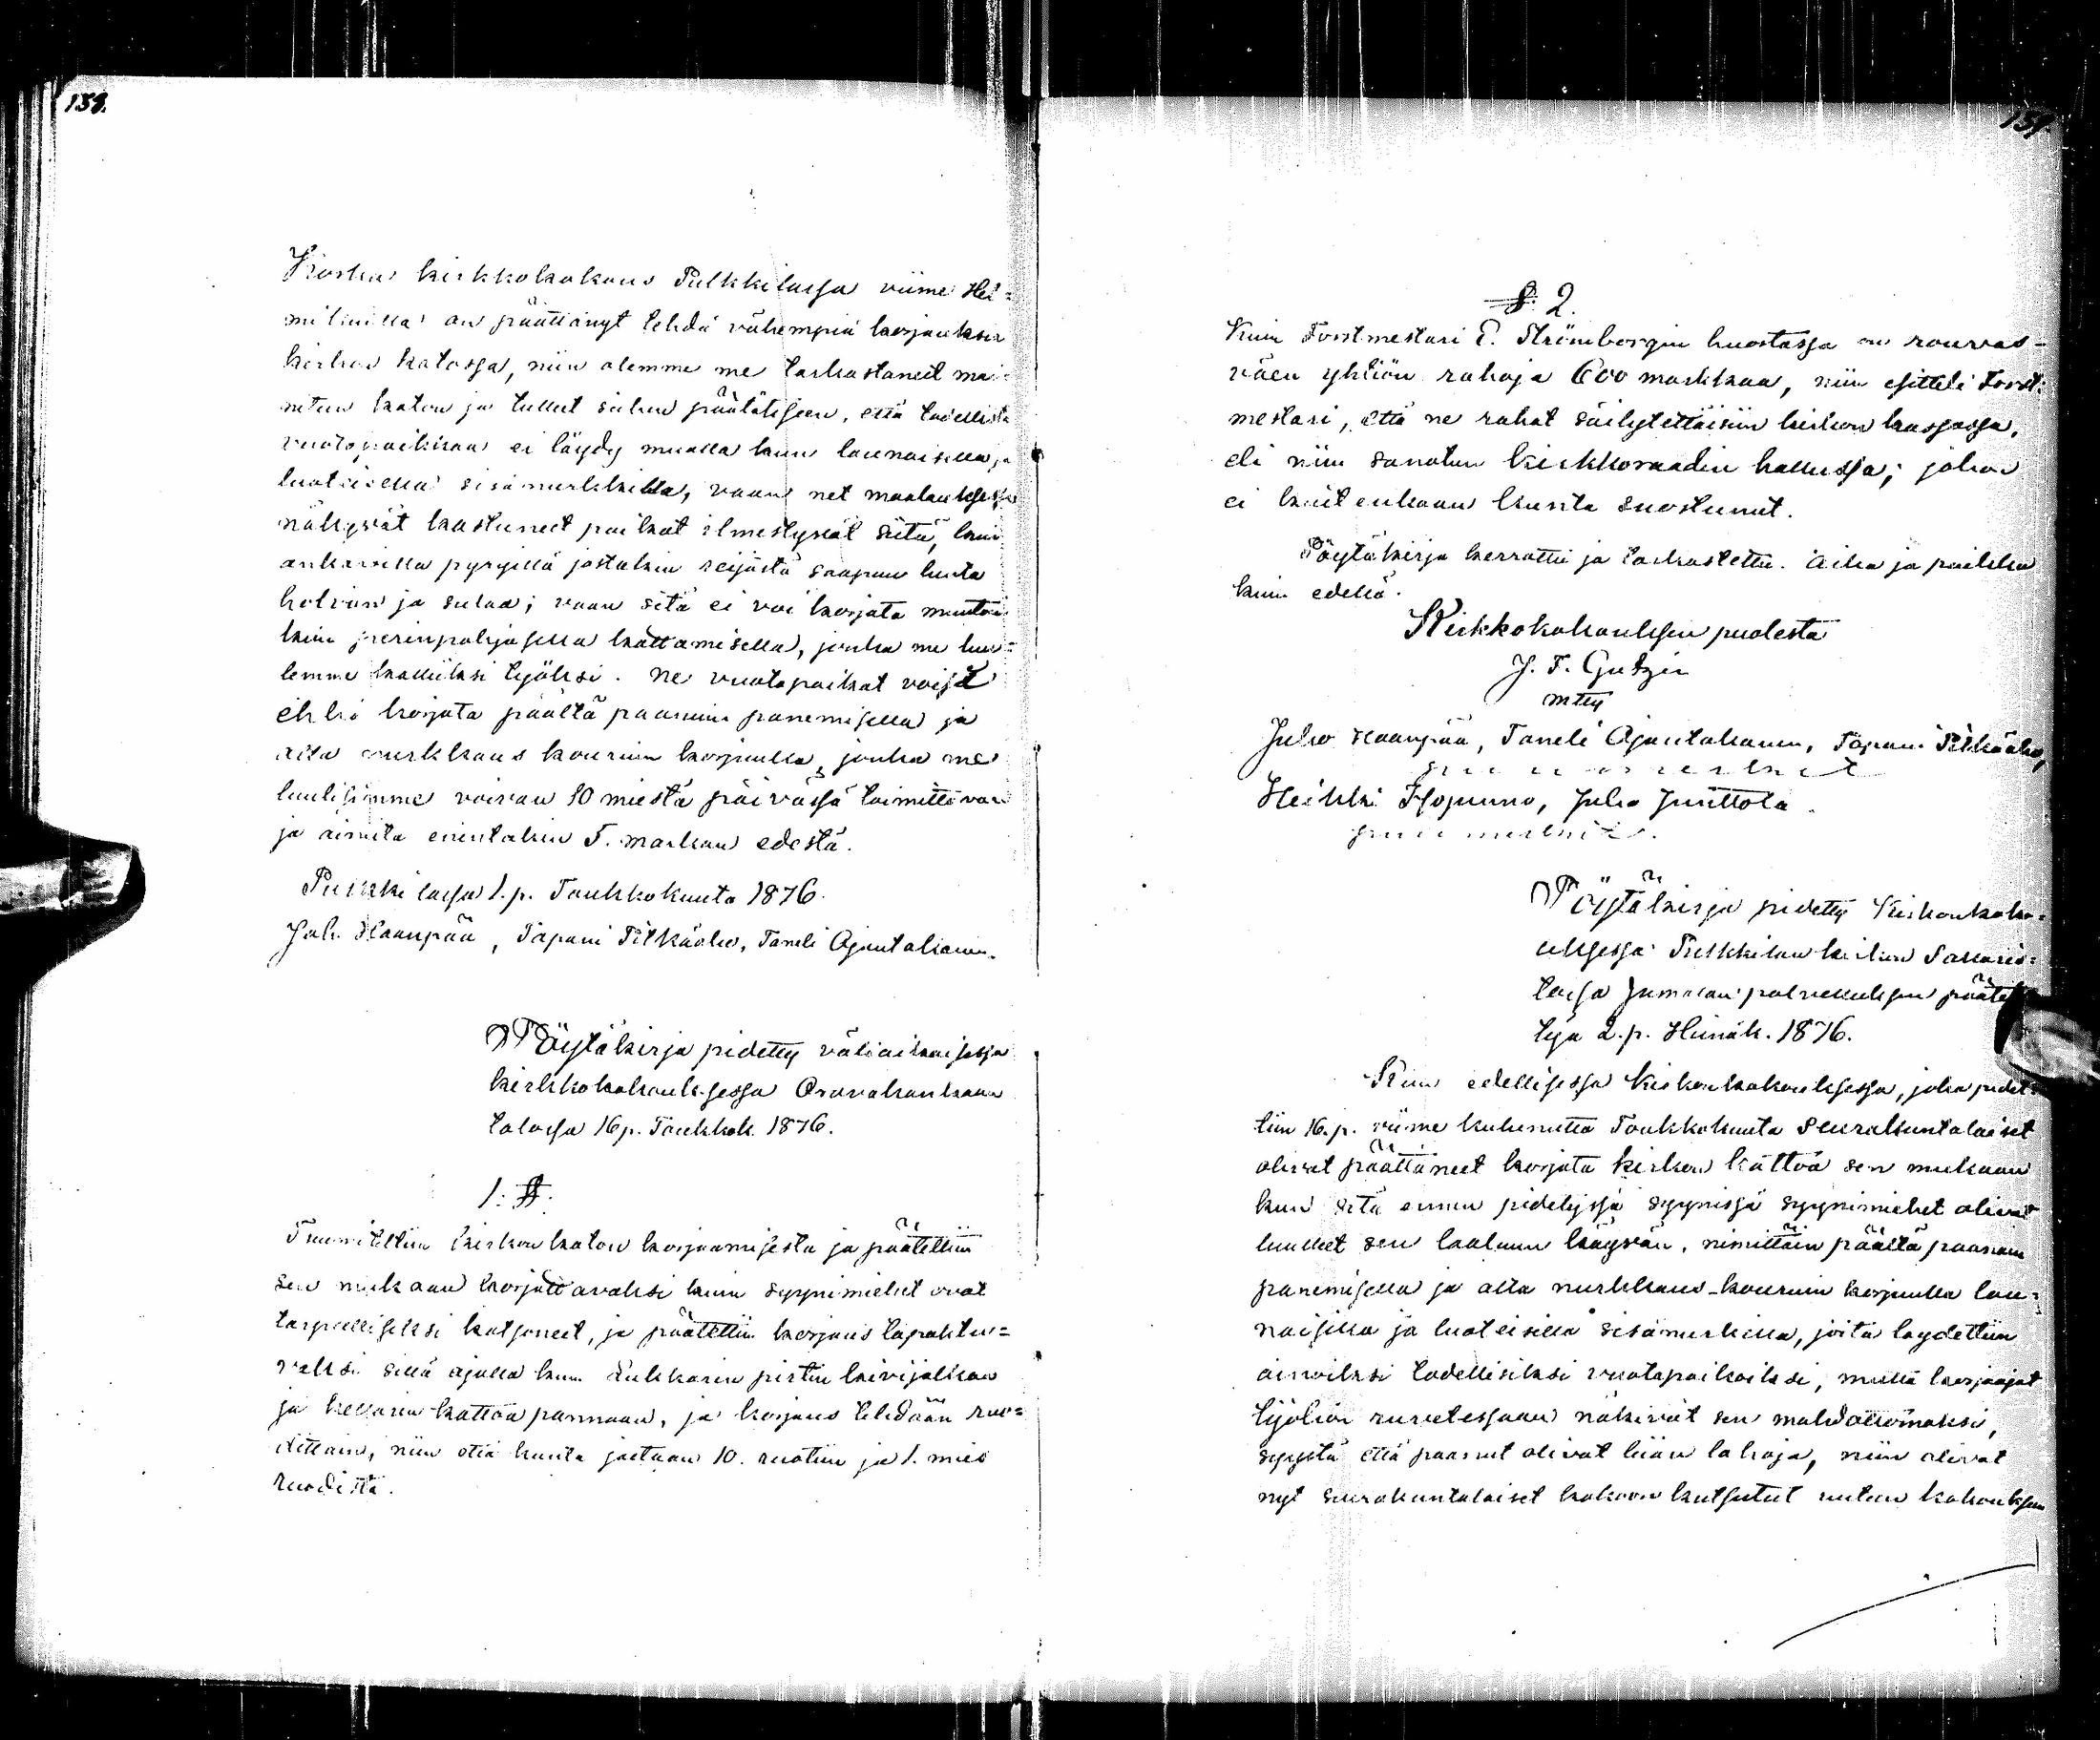 159.
Koska kirkkokokous Pulkkilassa viime Hel=
mikuulla on päättänyt tehdä vähempiä korjauksia
kirkon katossa, niin olemme me tarkastaneet mai=
nitun katon ja tulleet siihen päätökseen, että todellista
vuotopaikkaa ei löydy muualla kuin lounaisella ja
luoteisella sisänurkkilla, vaan net maalauksessa
näkyvät kastuneet paikat ilmestyvät siitä, kuin
ankarilla pyryillä jostakin reijästä saapuu lunta
holviin ja sulaa; vaan sitä ei voi korjata muutoin
kuin perinpohjasella kattamisella, jonka me luu=
lemme kalliiksi työksi. Ne vuotopaikat voisi
ehkä korjata päältä paanuin panemisella ja
alta nurkkaus kouruin korjuulla, jonka me
luulisimme voivan 10 miestä päivässä toimittavan
ja aineita enintäkin 5. markan edestä.
Pulkkilassa 1. p. Toukkokuuta 1876.
Joh. Haanpää, Tapani Pitkäaho, Taneli Ajantakanen.
Pöytäkirja pidetty väliaikaisessa
kirkkokokouksessa Oravakankaan
talossa 16 p. Toukkok. 1876.
1: §.
Tuumiteltiin kirkon katon korjaamisesta ja päätettiin
sen mukaan korjattavaksi kuin syynimiehet ovat
tarpeelliseksi katsoneet, ja päätettiin korjaus tapahtu=
vaksi sillä ajalla kuin Lukkarin pirtin kivijalkaa
ja kellarin kattoa pannaan, ja korjaus tehdään ruo=
dittain, niin että kunta jaetaan 10. ruotiin ja 1. mies
ruodista.
159.
§. 2.
Kuin Forstmestari E. Strömborgin huostassa on rouvas-
väen yhtiön rahoja 600 markkaa, niin esitteli Forst:
mestari, että ne rahat säilytettäisiin kirkon kassassa,
eli niin sanotun kirkkoraadin hallussa; johon
ei kuitenkaan kunta suostunut.
Pöytäkirja kerrottu ja tarkastettu. Aika ja paikka
kuin edellä.
Kirkkokokouksen puolesta
J. F. Gutzén
mtty
Juho Haanpää, Taneli Ajantakanen, Tapani Pitkäaho,
puumerkit
Heikki Hyvänen, Juho Junttola.
puumerkit.
Pöytäkirja pidetty Kirkonkoko=
uksessa Pulkkilan kirkon Sakaris=
tossa Jumalan palveluksen päätet
tyä 2. p. Heinäk. 1876.
Kuin edellisessä kirkonkokouksessa, joka pidet=
tiin 16. p. viime kulunutta Toukkokuuta Seurakuntalaiset
olivat päättäneet korjata kirkon kattoa sen mukaan
kuin sitä ennen pidetyssä syynissä syynimiehet olivat
luulleet sen laatuun käyvän, nimittäin päältä paanuin
panemisella ja alta nurkkaus-kouruin korjuulla lou=
naisella ja luoteisella sisänurkilla, joita löydettiin
ainoiksi todellisiksi vuotopaikoiksi, mutta korjaajat
työhön ruvetessaan näkivät sen mahdottomaksi,
syystä että paanut olivat liian lahoja, niin olivat
nyt seurakuntalaiset kokoon kutsutut uuteen kokoukseen